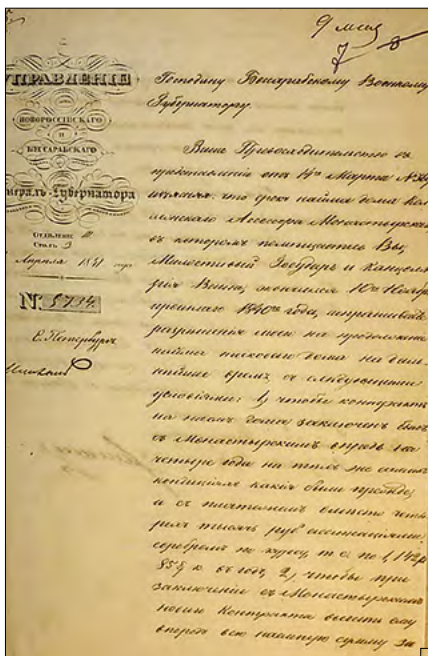 9 мая
7 8
УПРАВЛЕНІЕ
НОВОРОССІЙСКАГО
И
БЕССАРАБСКАГО
Генералъ-Губернатора
ОТДѢЛЕНІЕ III
Столъ 3
Апрѣля 1841 года
№ 5734
С. Петербургъ
Господину Бессарабскому Военному
Губернатору.
Ваше Превосходительство въ
представленіи отъ 14го Марта №
что срокъ найма дома Кол-
лежскаго Асессора Монастырскаго
въ которомъ помѣщаетесь Вы,
Милостивый Государь и Канцеля-
рія Ваша, окончился 10го Ноября
прошлаго 1840го года, испрашивали
разрѣшенія моего на продолженіе
найма таковаго дома на даль-
нѣйшее время, съ слѣдующими
условіями: 1, чтобы контрактъ
на наемъ дома заключенъ былъ
съ Монастырскимъ впредь на
четыре года на тѣхъ же самыхъ
кондиціяхъ какія были прежде,
и съ платежемъ вмѣсто четы-
рехъ тысячъ руб ассигнаціями,
серебромъ по курсу, т. е. по 1,142 р
85 5/7 к. въ годъ, 2, чтобы при
заключеніи съ Монастырскимъ
новаго Контракта выдать ему
впередъ всю наемную сумму за